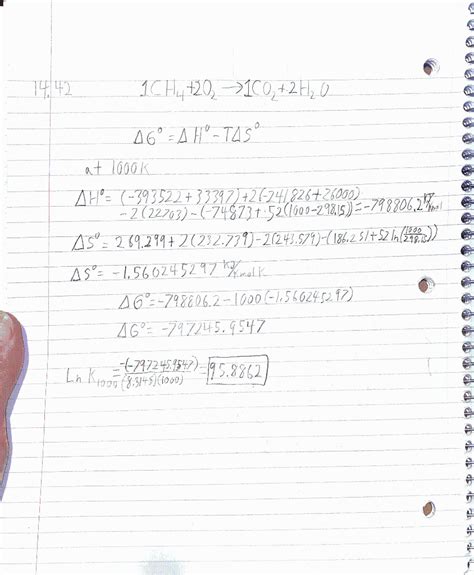 14.42 1CH₄+2O₂ →1CO₂+2H₂O
ΔG°=ΔH°-TΔS°
at 1000K
ΔH°= (-393522+33397)+2(-241826+26000)
-2(22703)-(-74873+52(1000-298.15))=-798806.2 kJ/kmol
ΔS°= 269.299+2(232.739)-2(243.579)-(186.251+52 ln(1000/298.15))
ΔS°= -1.560245297 kJ/kmolK
ΔG°=-798806.2-1000(-1.560245297)
ΔG°= -797245.9547
Ln K₁₀₀₀ = -(-797245.9547)/(8.3145)(1000) = 95.8862